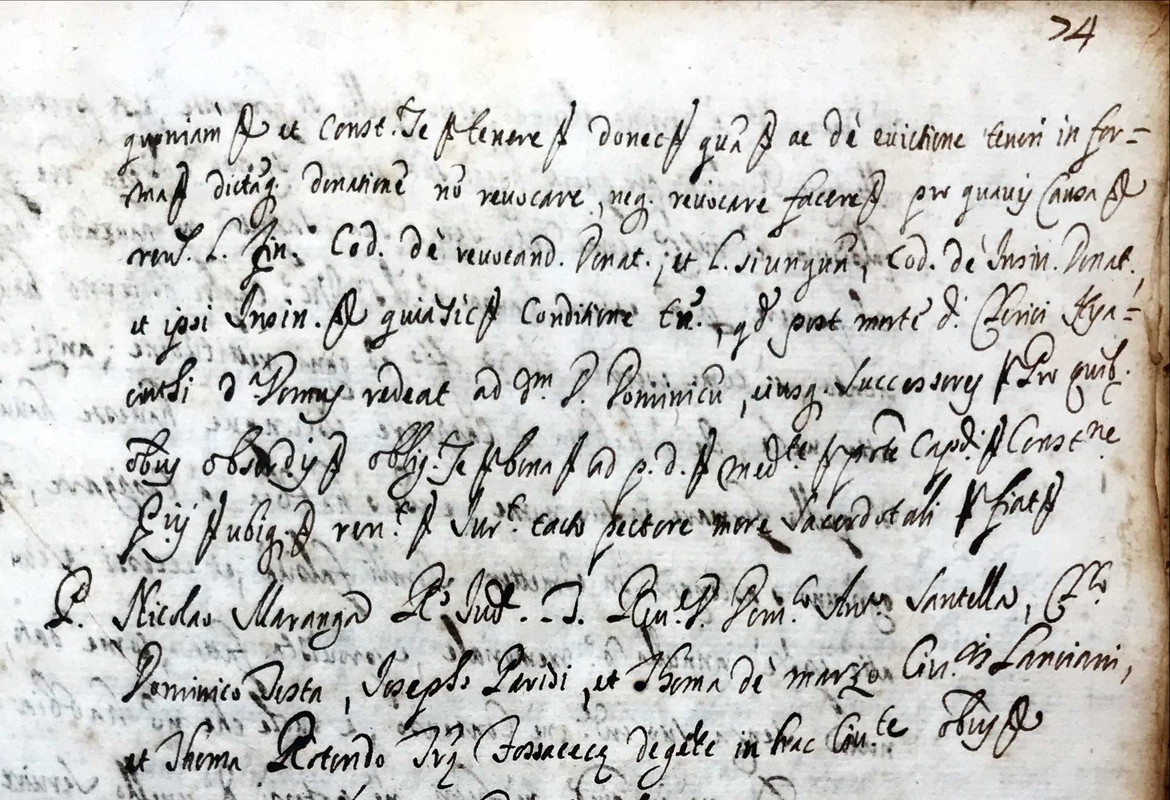 74
quoniam & et Const. Te tenere donec quā ac dè evictione teneri in for=
ma dictāq. donationē nō revocare, neq. revocare facere pro quavis Causa &
ren. L. fin. Cod. dè revocand. Donat., et L. si unquā, Cod. dè Insin. Donat.,
et ipsi Insin. & quia sic Conditione tn., qd post mortē d. Clerici Hya=
cinthi d. Domus redeat ad dm. D. Dominicū, eiusq. Successores Pro quib.
obus oblig. Te bona ad p. d. med.te parte Cap. Const.ne
ubiq. ren.t Jur.t tacto pectore more Sacerdotali fiat
P. Nicolao Maranga Rs Jud. Dom.co Ant.o Santella, Cl.o
Dominico Testa, Joseph Paridi, et Thoma dè marzo Civ.is Lanciani,
et Thoma Rotondo Trę Fossacecę degēte in hac Civ.te obus &